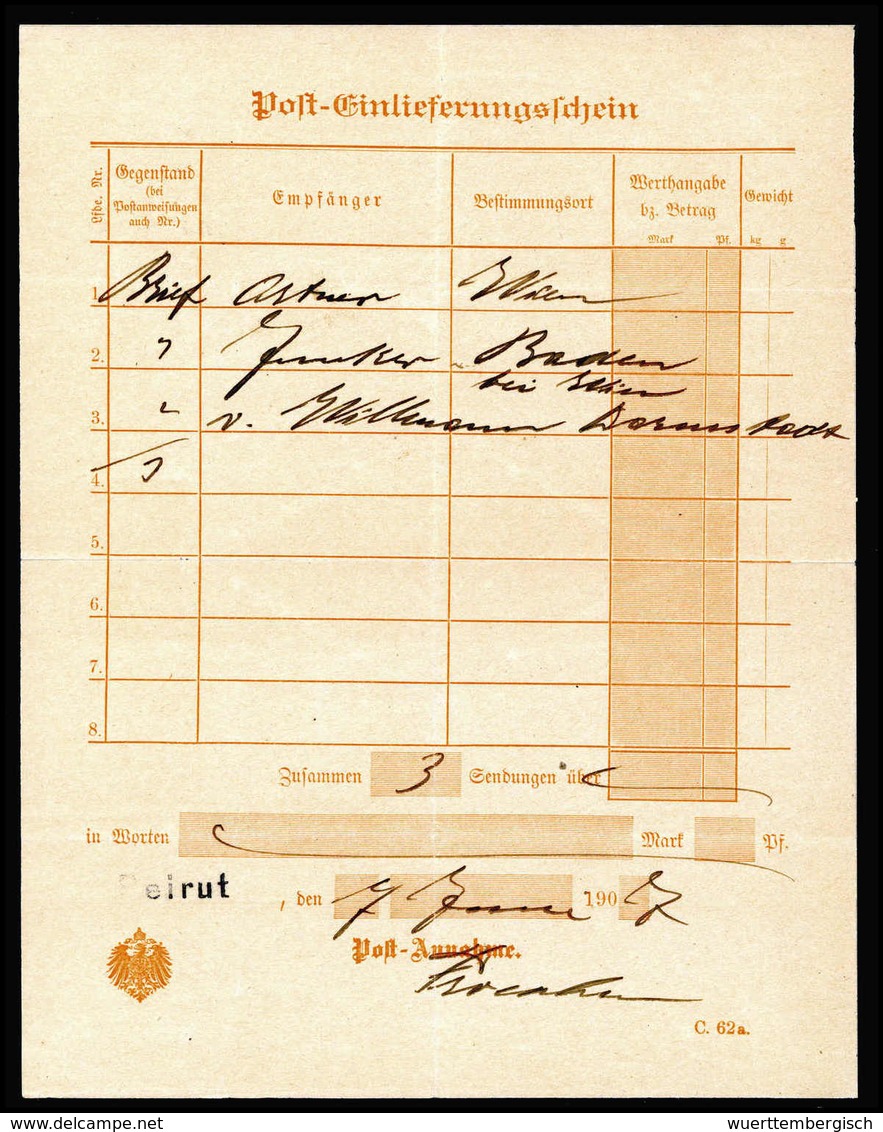 Post-Einlieferungsschein
Lfde. Nr.
Gegenstand
(bei
Postanweisungen
auch Nr.)
Empfänger
Bestimmungsort
Werthangabe
bz. Betrag
Mark Pf.
Gewicht
kg g
1. Brief Astner Wien
2. " Junker Baden
bei Wien
3. " v. Willmann Darmstadt
4.
5.
6.
7.
8.
Zusammen 3 Sendungen über
in Worten Mark Pf.
Beirut , den 7 June 1907
Post-Annahme.
C. 62a.
www.delcampe.net
wuerttembergisch